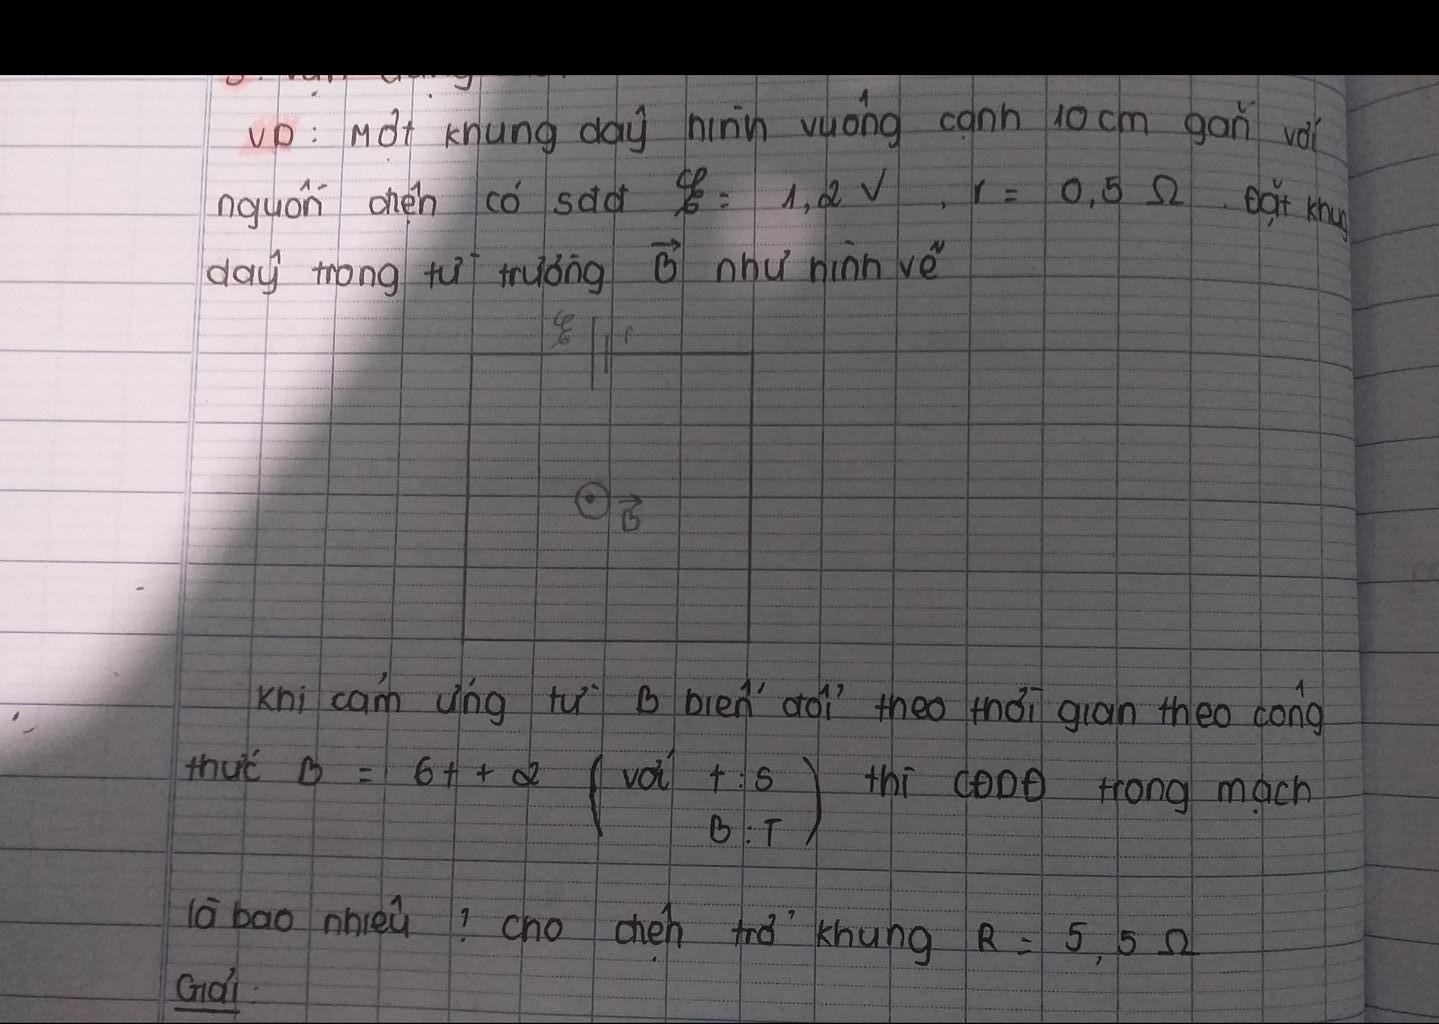 VD: Một khung dây hình vuông cạnh 10 cm gắn với
nguồn điện có sđđ ℰ = 1,2 V , r = 0,5 Ω . Đặt khung
dây trong từ trường B⃗ như hình vẽ
ℰ r
B⃗
Khi cảm ứng từ B biến đổi theo thời gian theo công
thức B = 6t + 2 (với t : s
B : T) thì CĐDĐ trong mạch
là bao nhiêu ? cho điện trở khung R = 5,5 Ω
Giải :